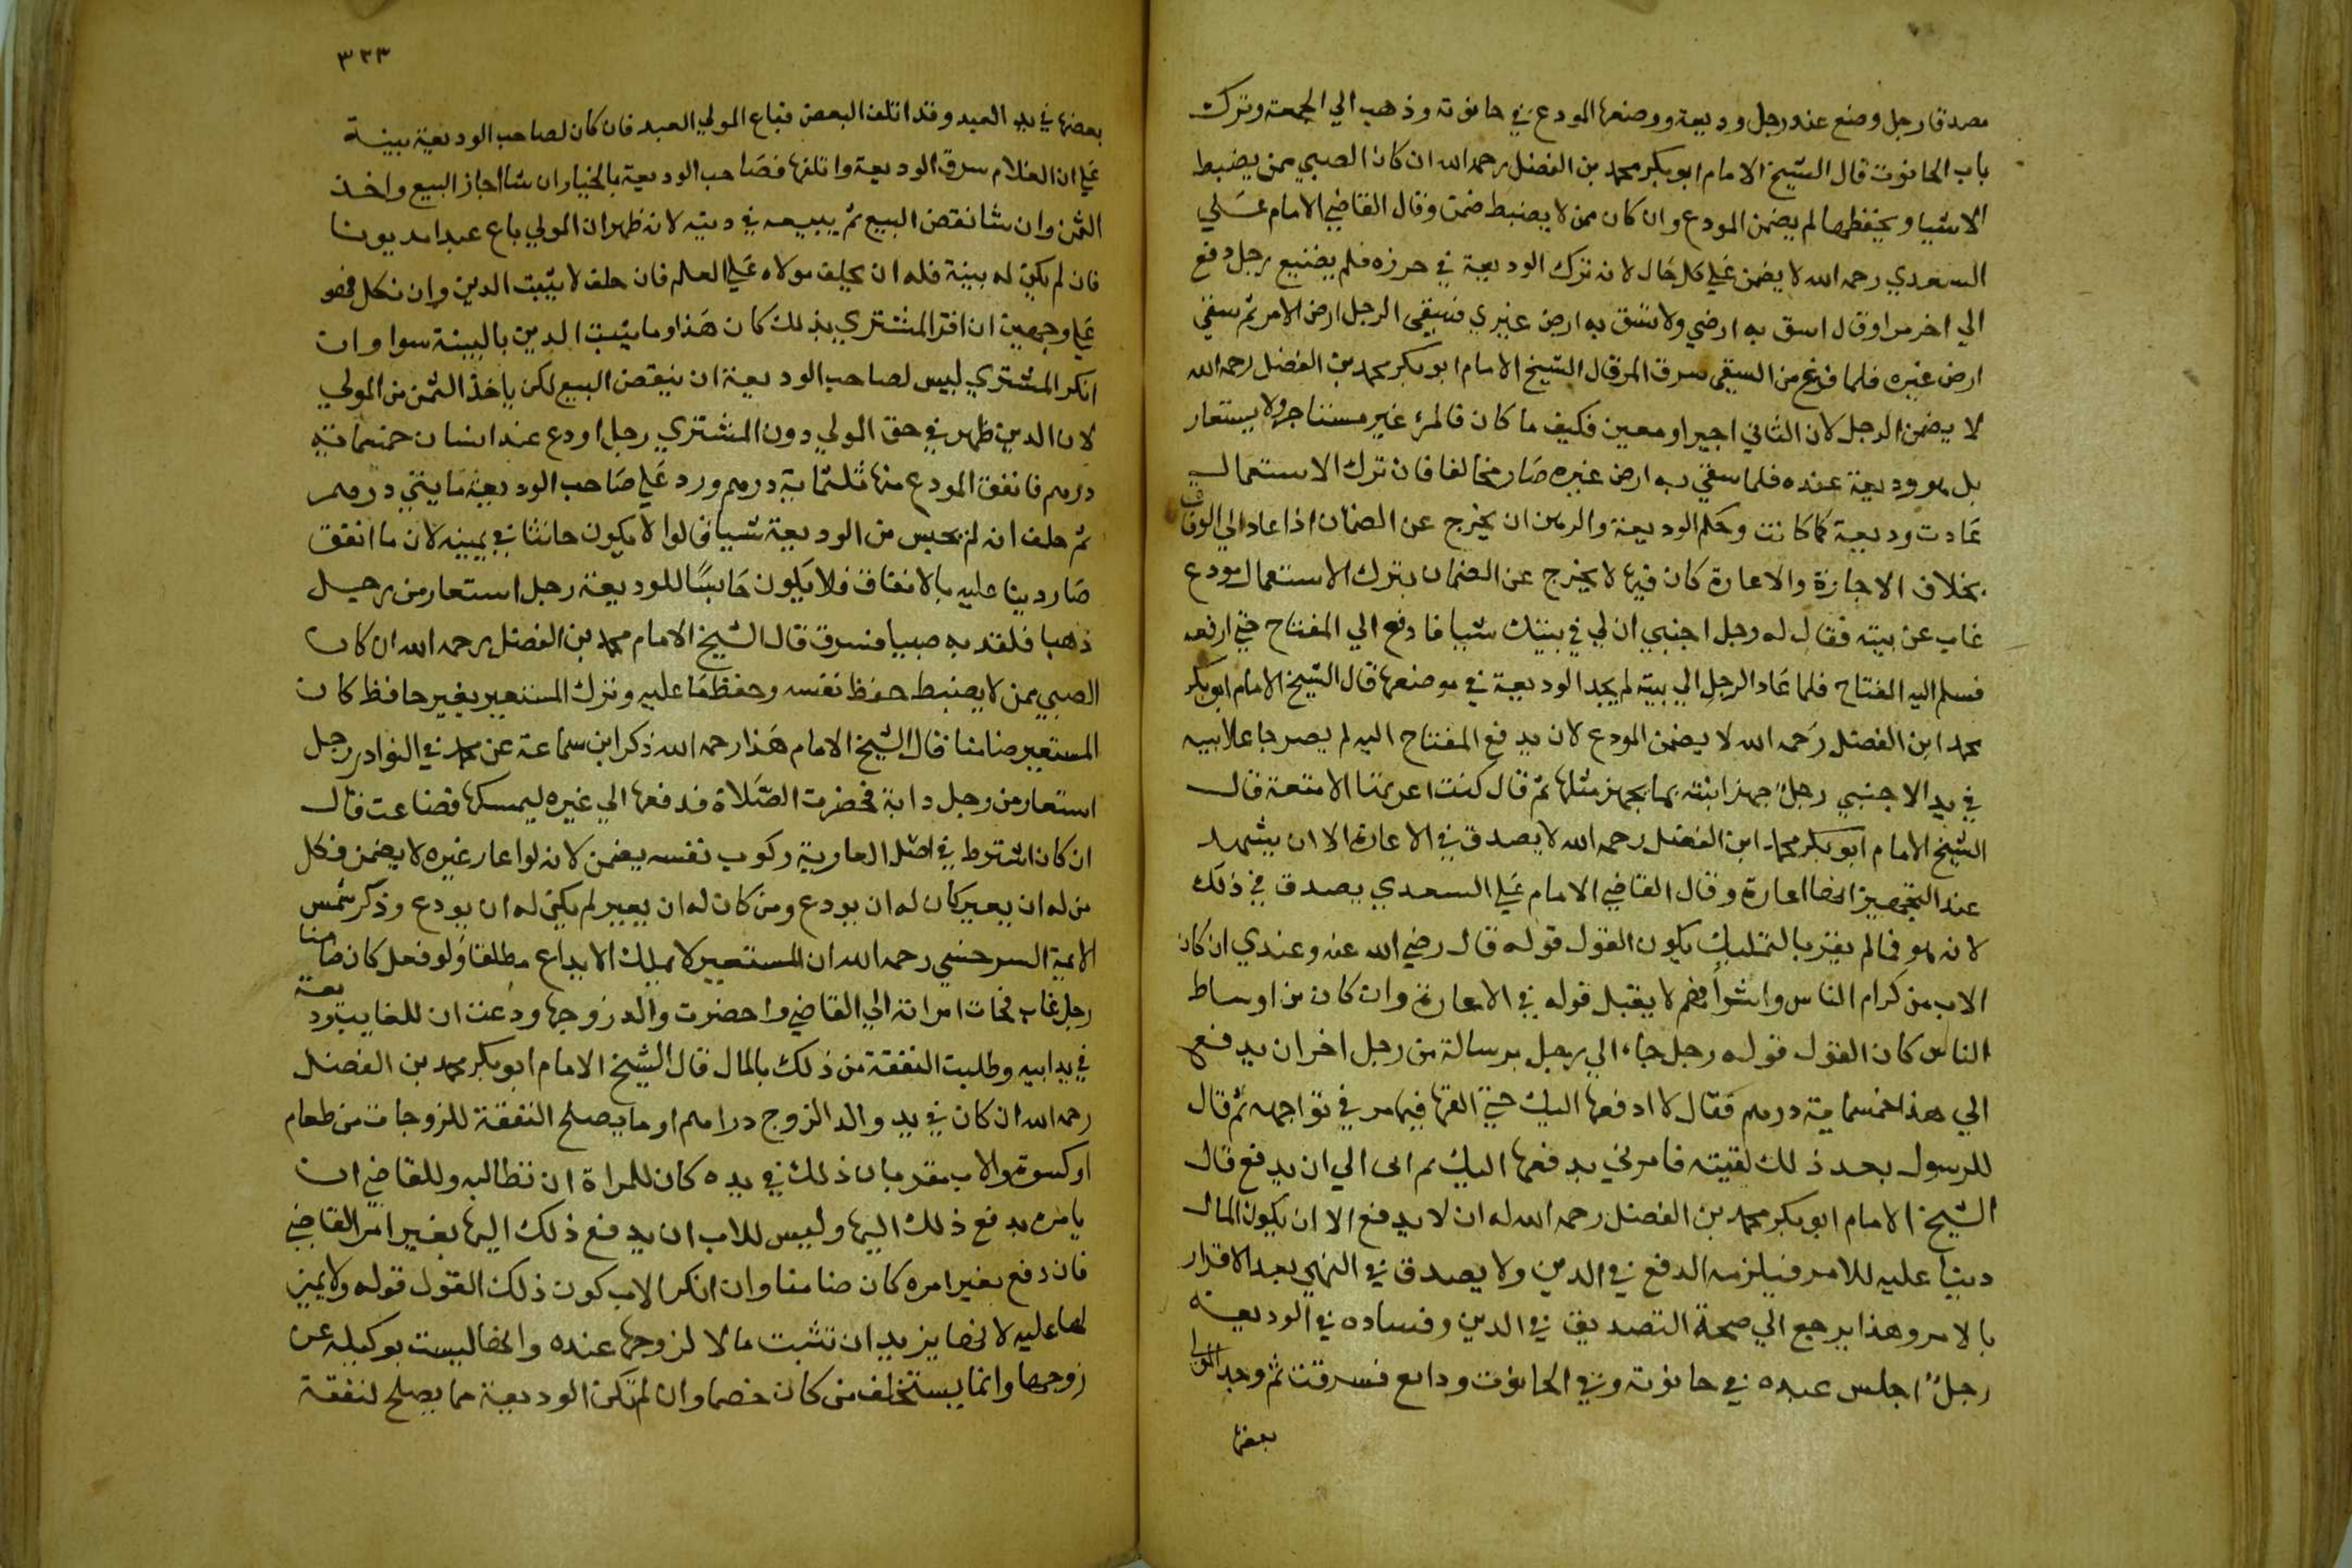 مصدقا رجل وضع عند رجل وديعة ووضعها المودع في حانوته وذهب الي الجمعة وترك
باب الحانوت قال الشيخ الامام ابو بكر محمد بن الفضل رحمه الله ان كان الصبي ممن يضبط
الاشيا ويحفظها لم يضمن المودع وان كان ممن لا يضبط ضمن وقال القاضي الامام علي
السعدي رحمه الله لا يضمن علي كل حال لانه ترك الوديعة في حرزه فلم يضيع رجل دفع
الي اخر مرا وقال اسق به ارضي ولا تسق به ارض غيري فسقي الرجل ارض الامر ثم سقي
ارض غيره فلما فرغ من السقي سرق المر قال الشيخ الامام ابو بكر محمد بن الفضل رحمه الله
لا يضمن الرجل لان الثاني اجير او معين فكيف ما كان فالمر غير مستاجر ولا يستعار
بل هو وديعة عنده فلما سقي به ارض غيره صار مخالفا فان ترك الاستعمال
عادت وديعة كما كانت وحكم الوديعة والرهن ان يخرج عن الضمان اذا عاد الي الوفاق
بخلاف الاجازة والاعارة كان فيها لا يخرج عن الضمان بترك الاستعمال مودع
غاب عن بيته فقال له رجل اجنبي ان لي في بيتك شيا فادفع الي المفتاح حتي ارفعه
فسلم اليه المفتاح فلما عاد الرجل الي بيته لم يجد الوديعة في موضعها قال الشيخ الامام ابو بكر
محمد ابن الفضل رحمه الله لا يضمن المودع لان بدفع المفتاح اليه لم يصر جاعلا بيته
في يد الاجنبي رجل جهز ابنته بما يجهز مثلها ثم قال كنت اعرتها الامتعة قال
الشيخ الامام ابو بكر محمد ابن الفضل رحمه الله لا يصدق في الاعارة الا ان يشهد
عند التجهيز انها اعارة وقال القاضي الامام علي السعدي يصدق في ذلك
لانه هو فما لم يقر بالتمليك يكون القول قوله قال رضي الله عنه وعندي ان كان
الاب من كرام الناس واشرافهم لا يقبل قوله في الاعارة وان كان من اوساط
الناس كان القول قوله رجل جاء الي رجل برسالة من رجل اخر ان يدفع
الي هذا خمسماية درهم فقال لا ادفعها اليك حتي القها فيامر في تواجهه ثم قال
للرسول بعد ذلك لقيته فامرني بدفعها اليك ثم ابى الي ان يدفع قال
الشيخ الامام ابو بكر محمد بن الفضل رحمه الله له ان لا يدفع الا ان يكون المال
دينا عليه للامر فيلزمه الدفع في الدين ولا يصدق في النهي بعد الاقرار
بالامر وهذا يرجع الي صحة التصديق في الدين وفساده في الوديعة
رجل اجلس عبده في حانوته وفي الحانوت ودايع فسرقت ثم وجد المولي
بعضها
٣٣٣
بعضها في يد العبد وقد اتلف البعض فباع المولي العبد فان كان لصاحب الوديعة بينة
علي ان الغلام سرق الوديعة واتلفها فصاحب الوديعة بالخيار ان شا اجاز البيع واخذ
الثمن وان شا نقض البيع ثم يبيعه في دينه لانه ظهر ان المولي باع عبدا مديونا
فان لم يكن له بينة فله ان يحلف مولاه علي العلم فان حلف لا يثبت الدين وان نكل فهو
علي وجهين ان اقر المشتري بذلك كان هذا وما يثبت الدين بالبينة سوا وان
انكر المشتري ليس لصاحب الوديعة ان ينقض البيع لكن ياخذ الثمن من المولي
لان الدين ظهر في حق المولي دون المشتري رجل اودع عند انسان خمسماية
درهم فانفق المودع منها ثلثماية درهم ورد علي صاحب الوديعة مايتي درهم
ثم حلف انه لم يحبس من الوديعة شيا قالوا لا يكون حانثا في يمينه لان ما انفق
صار دينا عليه بالانفاق فلا يكون حابسا للوديعة رجل استعار من رجل
ذهبا فلقد به صبيا فسرق قال الشيخ الامام محمد بن الفضل رحمه الله ان كان
الصبي ممن لا يضبط حفظ نفسه وحفظ ما عليه وترك المستعير بغير حافظ كان
المستعير ضامنا قال الشيخ الامام هذا رحمه الله ذكر ابن سماعة عن محمد في النوادر رجل
استعار من رجل دابة فحضرت الصلاة فدفعها الي غيره ليمسكها فضاعت قال
ان كان اشترط في اصل العارية ركوب نفسه يضمن لانه لو اعار غيره لا يضمن فكل
من له ان يعير كان له ان يودع ومن كان له ان يعير لم يكن له ان يودع وذكر شمس
الايمة السرخسي رحمه الله ان المستعير لا يملك الايداع مطلقا ولو فعل كان ضامنا
رجل غاب فجات امراته الي القاضي واحضرت والد زوجها ودعت ان للغايب وديعة
في يد ابيه وطلبت النفقة من ذلك بالمال قال الشيخ الامام ابو بكر محمد بن الفضل
رحمه الله ان كان في يد والد الزوج دراهم او ما يصلح النفقة للزوجات من طعام
او كسوة والاب مقر بان ذلك في يده كان للمراة ان تطالبه وللقاضي ان
يامره بدفع ذلك اليها وليس للاب ان يدفع ذلك اليها بغير امر القاضي
فان دفع بغير امره كان ضامنا وان انكر الاب كون ذلك القول قوله ولا يمين
لها عليه لانها يزيد ان تثبت مالا لزوجها عنده وانها ليست بوكيله عن
زوجها وانما يستحلف من كان خصما وان لم تكن الوديعة مما يصلح لنفقة